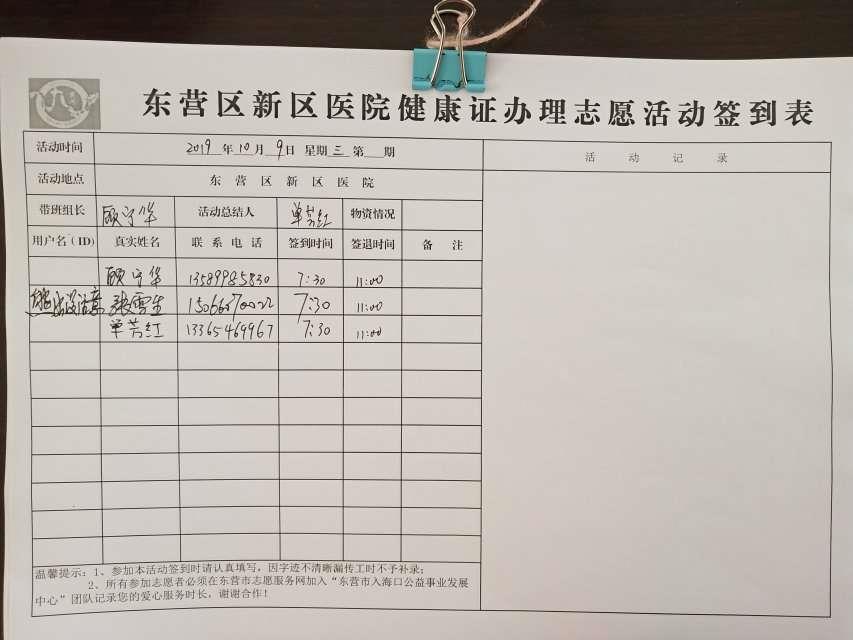 东营区新区医院健康证办理志愿活动签到表
活动时间 2019年10月9日 星期三 第 期 活动记录
活动地点 东营区新区医院
带班组长 顾宁华 活动总结人 单芳红 物资情况
用户名(ID) 真实姓名 联系电话 签到时间 签退时间 备注
顾宁华 13589985830 7:30 11:00
张雪生 7:30 11:00
单芳红 13365469967 7:30 11:00
温馨提示：1、参加本活动签到时请认真填写，因字迹不清晰漏传工时不予补录；
2、所有参加志愿者必须在东营市志愿服务网加入“东营市入海口公益事业发展
中心”团队记录您的爱心服务时长，谢谢合作！